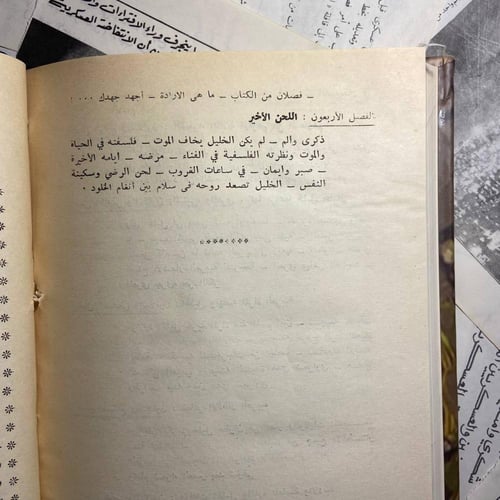 ينجرف وراء الافتراءات
ان الانتفاضة العسكرية
ـ فصلان من الكتاب ـ ما هى الارادة ـ أجهد جهدك ....
الفصل الأربعون : اللحن الأخير
ذكرى والم ـ لم يكن الخليل يخاف الموت ـ فلسفته في الحياة
والموت ونظرته الفلسفية في الفناء ـ مرضه ـ ايامه الأخيرة
ـ صبر وايمان ـ في ساعات الغروب ـ لحن الرضي وسكينة
النفس ـ الخليل تصعد روحه فى سلام بين أنغام الخلود .
********